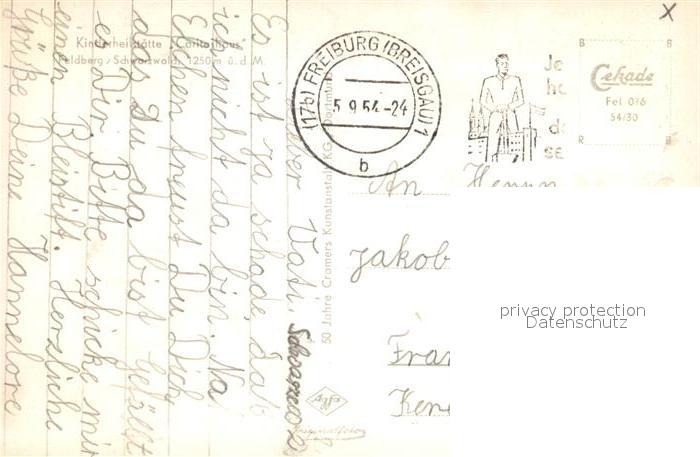 Kinderheilstätte "Caritashaus"
Feldberg / Schwarzwald, 1250 m ü. d. M.
Lieber Vati.
Es ist ja schade, daß
ich nicht da bin. Na
Elchen freust Du Dich
daß Du da bist. Gefällt
es Dir. Bitte schicke mir
einen Bleistift. Herzliche
Grüße Deine Hannelore
50 Jahre Cramers Kunstanstalt KG, Dortmund
Agfa
Originalfoto
(17b) FREIBURG (BREISGAU) 1
5.9.54-24
b
Je
ha
d
se
B B
Cekade
Fel 016
54/30
R R
x
An
Herrn
Jakob
Fran
Ker
privacy protection
Datenschutz